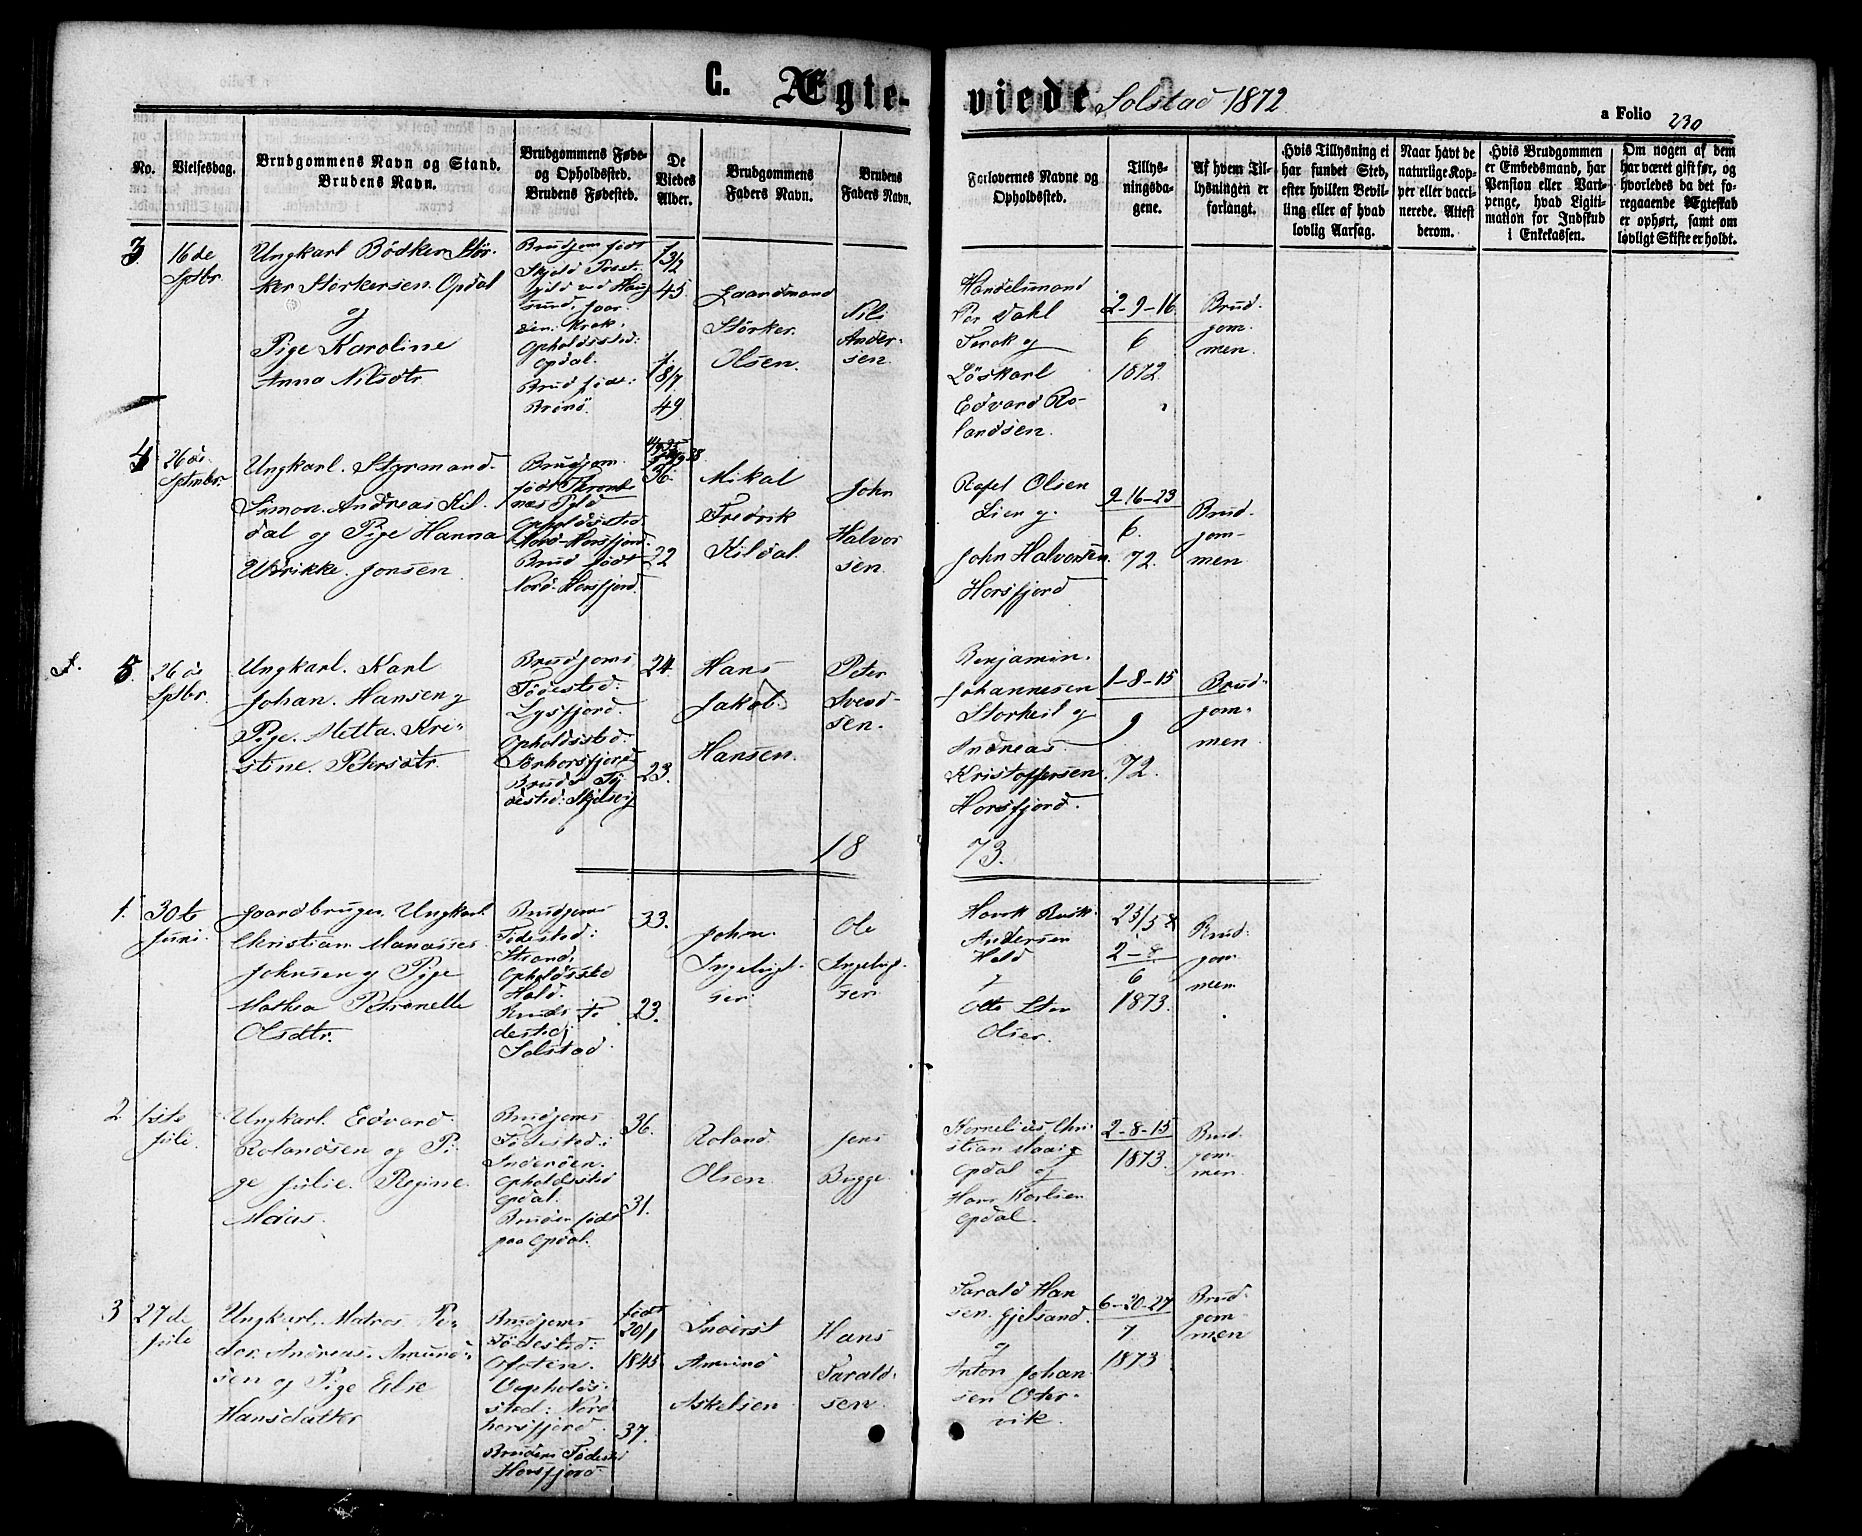 C. Ægte-
viede Solstad 1872
a Folio 230
No.
Vielsesdag.
Brudgommens Navn og Stand.
Brudens Navn.
Brudgommens Føde-
og Opholdssted.
Brudens Fødested.
De
Viedes
Alder.
Brudgommens
Faders Navn.
Brudens
Faders Navn.
Forlovernes Navne og
Opholdssted.
Tillys-
ningsda-
gene.
Af hvem Til-
lysningen er
forlangt.
Hvis Tillysning ei
har fundet Sted,
efter hvilken Bevil-
ling eller af hvad
lovlig Aarsag.
Naar havt de
naturlige Kop-
per eller vacci-
nerede. Attest
derom.
Hvis Brudgommen
er Embedsmand, har
Pension eller Vart-
penge, hvad Ligiti-
mation for Indskud
i Enkekassen.
Om nogen af dem
har været gift før, og
hvorledes da det fo-
regaaende Ægteskab
er ophørt, samt om
lovligt Skifte er holdt.
3
16de
Sptbr.
Ungkarl Bødker Stør-
ker Størkersen. Opdal
og
Pige Karoline
Anna Nilsdtr.
Brudgom født
Opholdssted:
Opdal.
Brud født:
Brønø.
13/2
45
18/7
49
Gaardmand
Störker
Olsen.
Nils
Ander-
sen.
Handelsmand
Per Dahl
Torok og
Löskarl
Edvard Ro-
landsen.
2-9-16
6
1872
Brud-
gom-
men.
4
26de
Sptmbr.
Ungkarl. Styrmand.
Simon Andreas Kil-
dal og Pige Hanna
Ulrikke. Jonsen
Brudgom
født
Opholdssted
Nord-Horsfjord.
Brud født
Nord-Horsfjord.
36.
22
Mikal
Fredrik
Kildal.
John
Halvor
sen.
Rafel Olsen
Lien og
John Halvorsen.
Horsfjord
9-16-23
6.
72.
Brud-
gom-
men
5.
26de
Sptbr.
Ungkarl. Karl
Johan. Hansen og
Pige. Metta Kri-
stine. Petersdtr.
Brudgoms
Födested:
Lysfjord.
Opholdssted:
Sørhorsfjord
Bruds Fö-
dested: Skjelsvig
24.
23.
Hans
Jakob.
Hansen.
Peter
Svend-
sen.
Benjamin.
Johannesen
Storheil og
Andreas
Kristoffersen
Horsfjord.
1-8-15
9
72.
Brud-
gom-
men
18
73.
1.
30te
Juni.
Gaardbruger. Ungkarl.
Christian Manasses
Johnsen og Pige
Mathea Petronelle
Olsdtr.
Brudgoms
Födested:
Strand,
Opholdssted
Hald.
Bruds Fö
dested:
Solstad.
33.
23.
John.
Ingebrigt-
sen.
Ole
Ingebrigt-
sen
Andersen
Hald
Olsen.
25/5
2-8
6
1873.
Brud-
gom-
men
2
1ste
Juli.
Ungkarl. Edvard.
Rolandsen og Pi-
ge Julie. Regine.
Maas.
Brudgoms
Födested:
Inderöen.
Opholdssted
Opdal.
Bruden født
paa Opdal.
36.
31.
Roland.
Olsen.
Jens
Bugge.
Kornelius. Chri-
stian Maas
Opdal og
Hans Karlsen
Opdal.
2-8-15
1873.
Brud-
gom-
men.
3
27de
Juli
Ungkarl. Matros. Pe-
der. Andreas. Amund-
sen og Pige Else
Hansdatter
Brudgoms
Födested:
Ofoten.
Oopholds-
sted: Nord
horsfjord.
Brudens Fødested
Horsfjord
født
20/1
1845
37.
Amund
Askelsen
Hans
Tarald-
sen
Tarald Han
sen. Gjelsand.
og
Anton Johan
sen Oter-
vik.
6-20-27
7
1873
Brud-
gom-
men